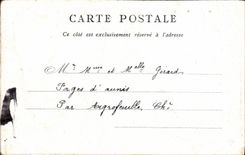 CARTE POSTALE
Ce côté est exclusivement réservé à l'adresse
Mr Mme et Melle Gerard
Pages d'aunis
Par Aigrefeuille, Ch